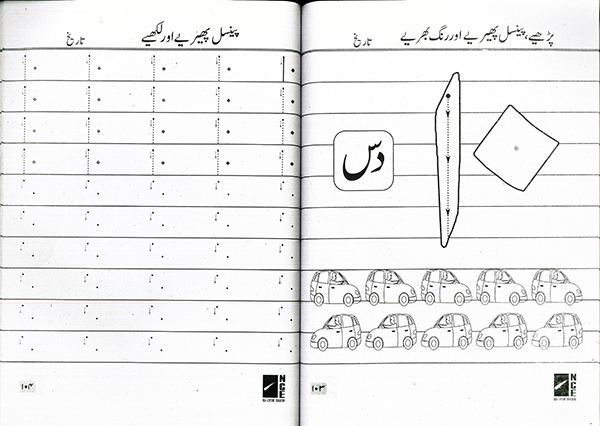 پڑھیے، پینسل پھیریے اور رنگ بھریے
تاریخ
دس
۱۰۳
NGE
پینسل پھیریے اور لکھیے
تاریخ
۱۰۴
NGE